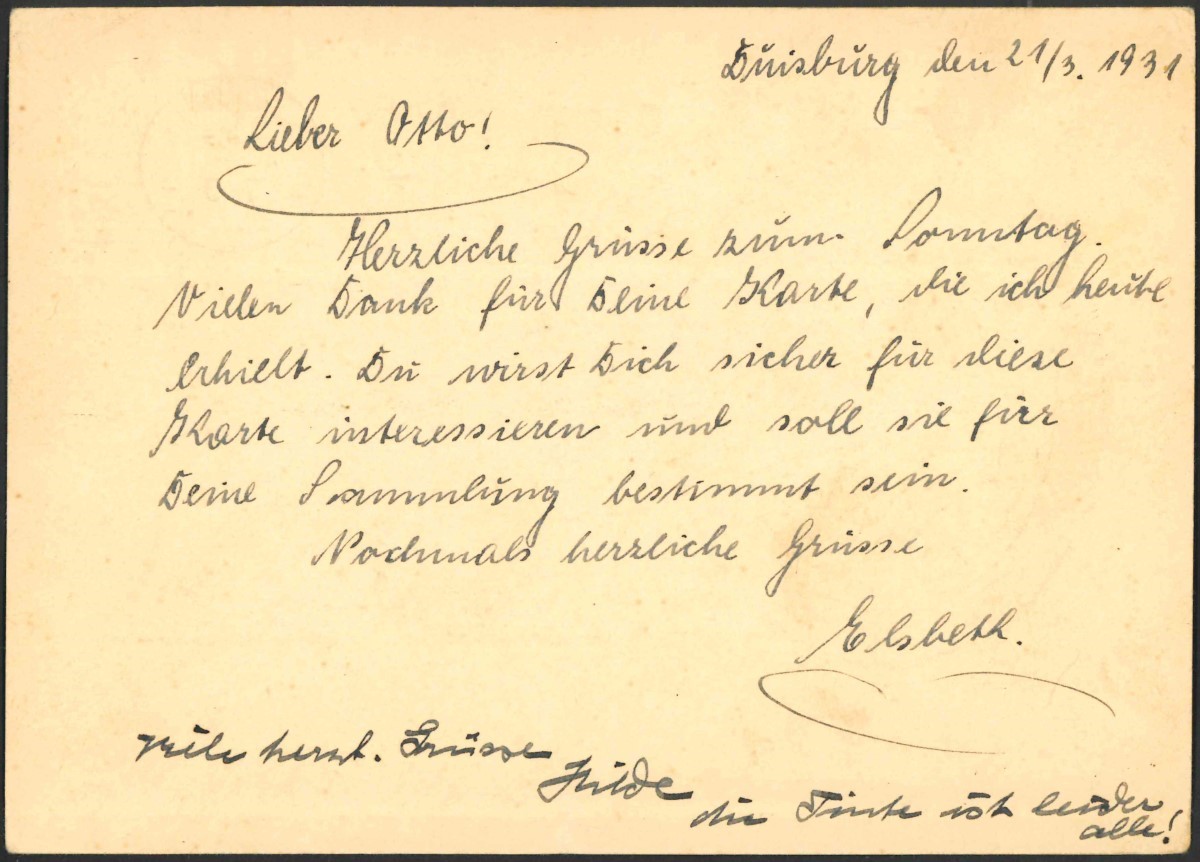 Duisburg den 21/3. 1931
Lieber Otto!
Herzliche Grüsse zum Sonntag.
Vielen Dank für Deine Karte, die ich heute
erhielt. Du wirst Dich sicher für diese
Karte interessieren und soll sie für
Deine Sammlung bestimmt sein.
Nochmals herzliche Grüsse
Elsbeth.
Viele herzl. Grüsse
Hilde
die Tinte ist leider
alle!